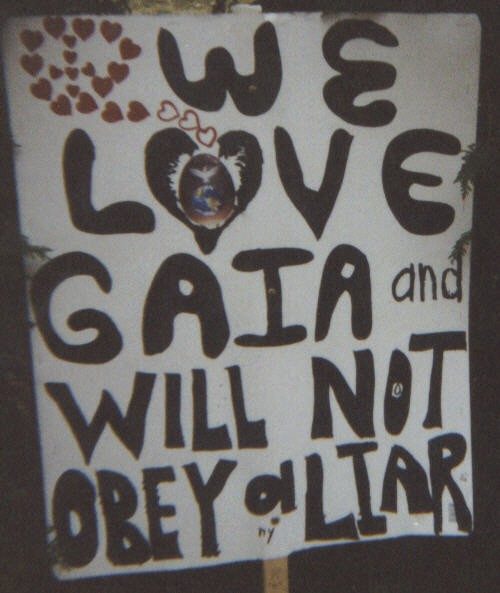 WE
LOVE
GAIA and
WILL NOT
OBEY a LIAR
ny